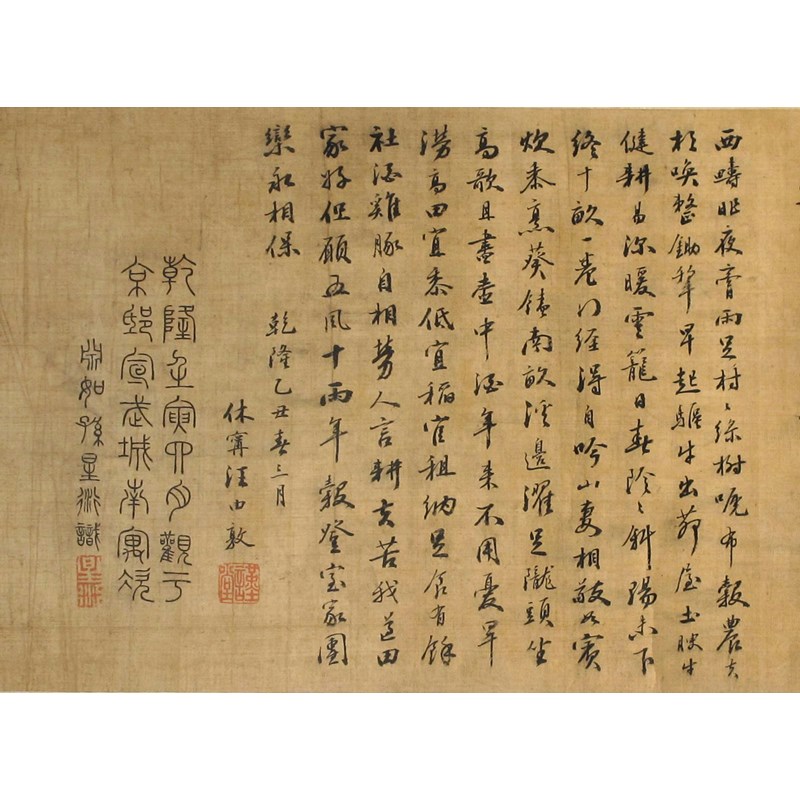 西疇昨夜膏雨足村〻綠樹呢布穀農夫
相喚整鋤犂早起驅牛出茆屋土腴牛
健耕易深暖雲籠日春陰〻斜陽未下
終十畝一卷行經得自吟山妻相敬如賓
炊黍烹葵饁南畝溪邊濯足隴頭坐
高歌且盡壺中酒年来不用憂旱
澇高田宜黍低宜稻官租納足食有餘
社酒雞豚自相勞人言耕夫苦我道田
家好但願五風十雨年穀登室家團
欒永相保 乾隆乙丑春三月
休寧汪由敦
乾隆壬寅四月觀于
京邸宣武城南寓
淵如孫星衍識